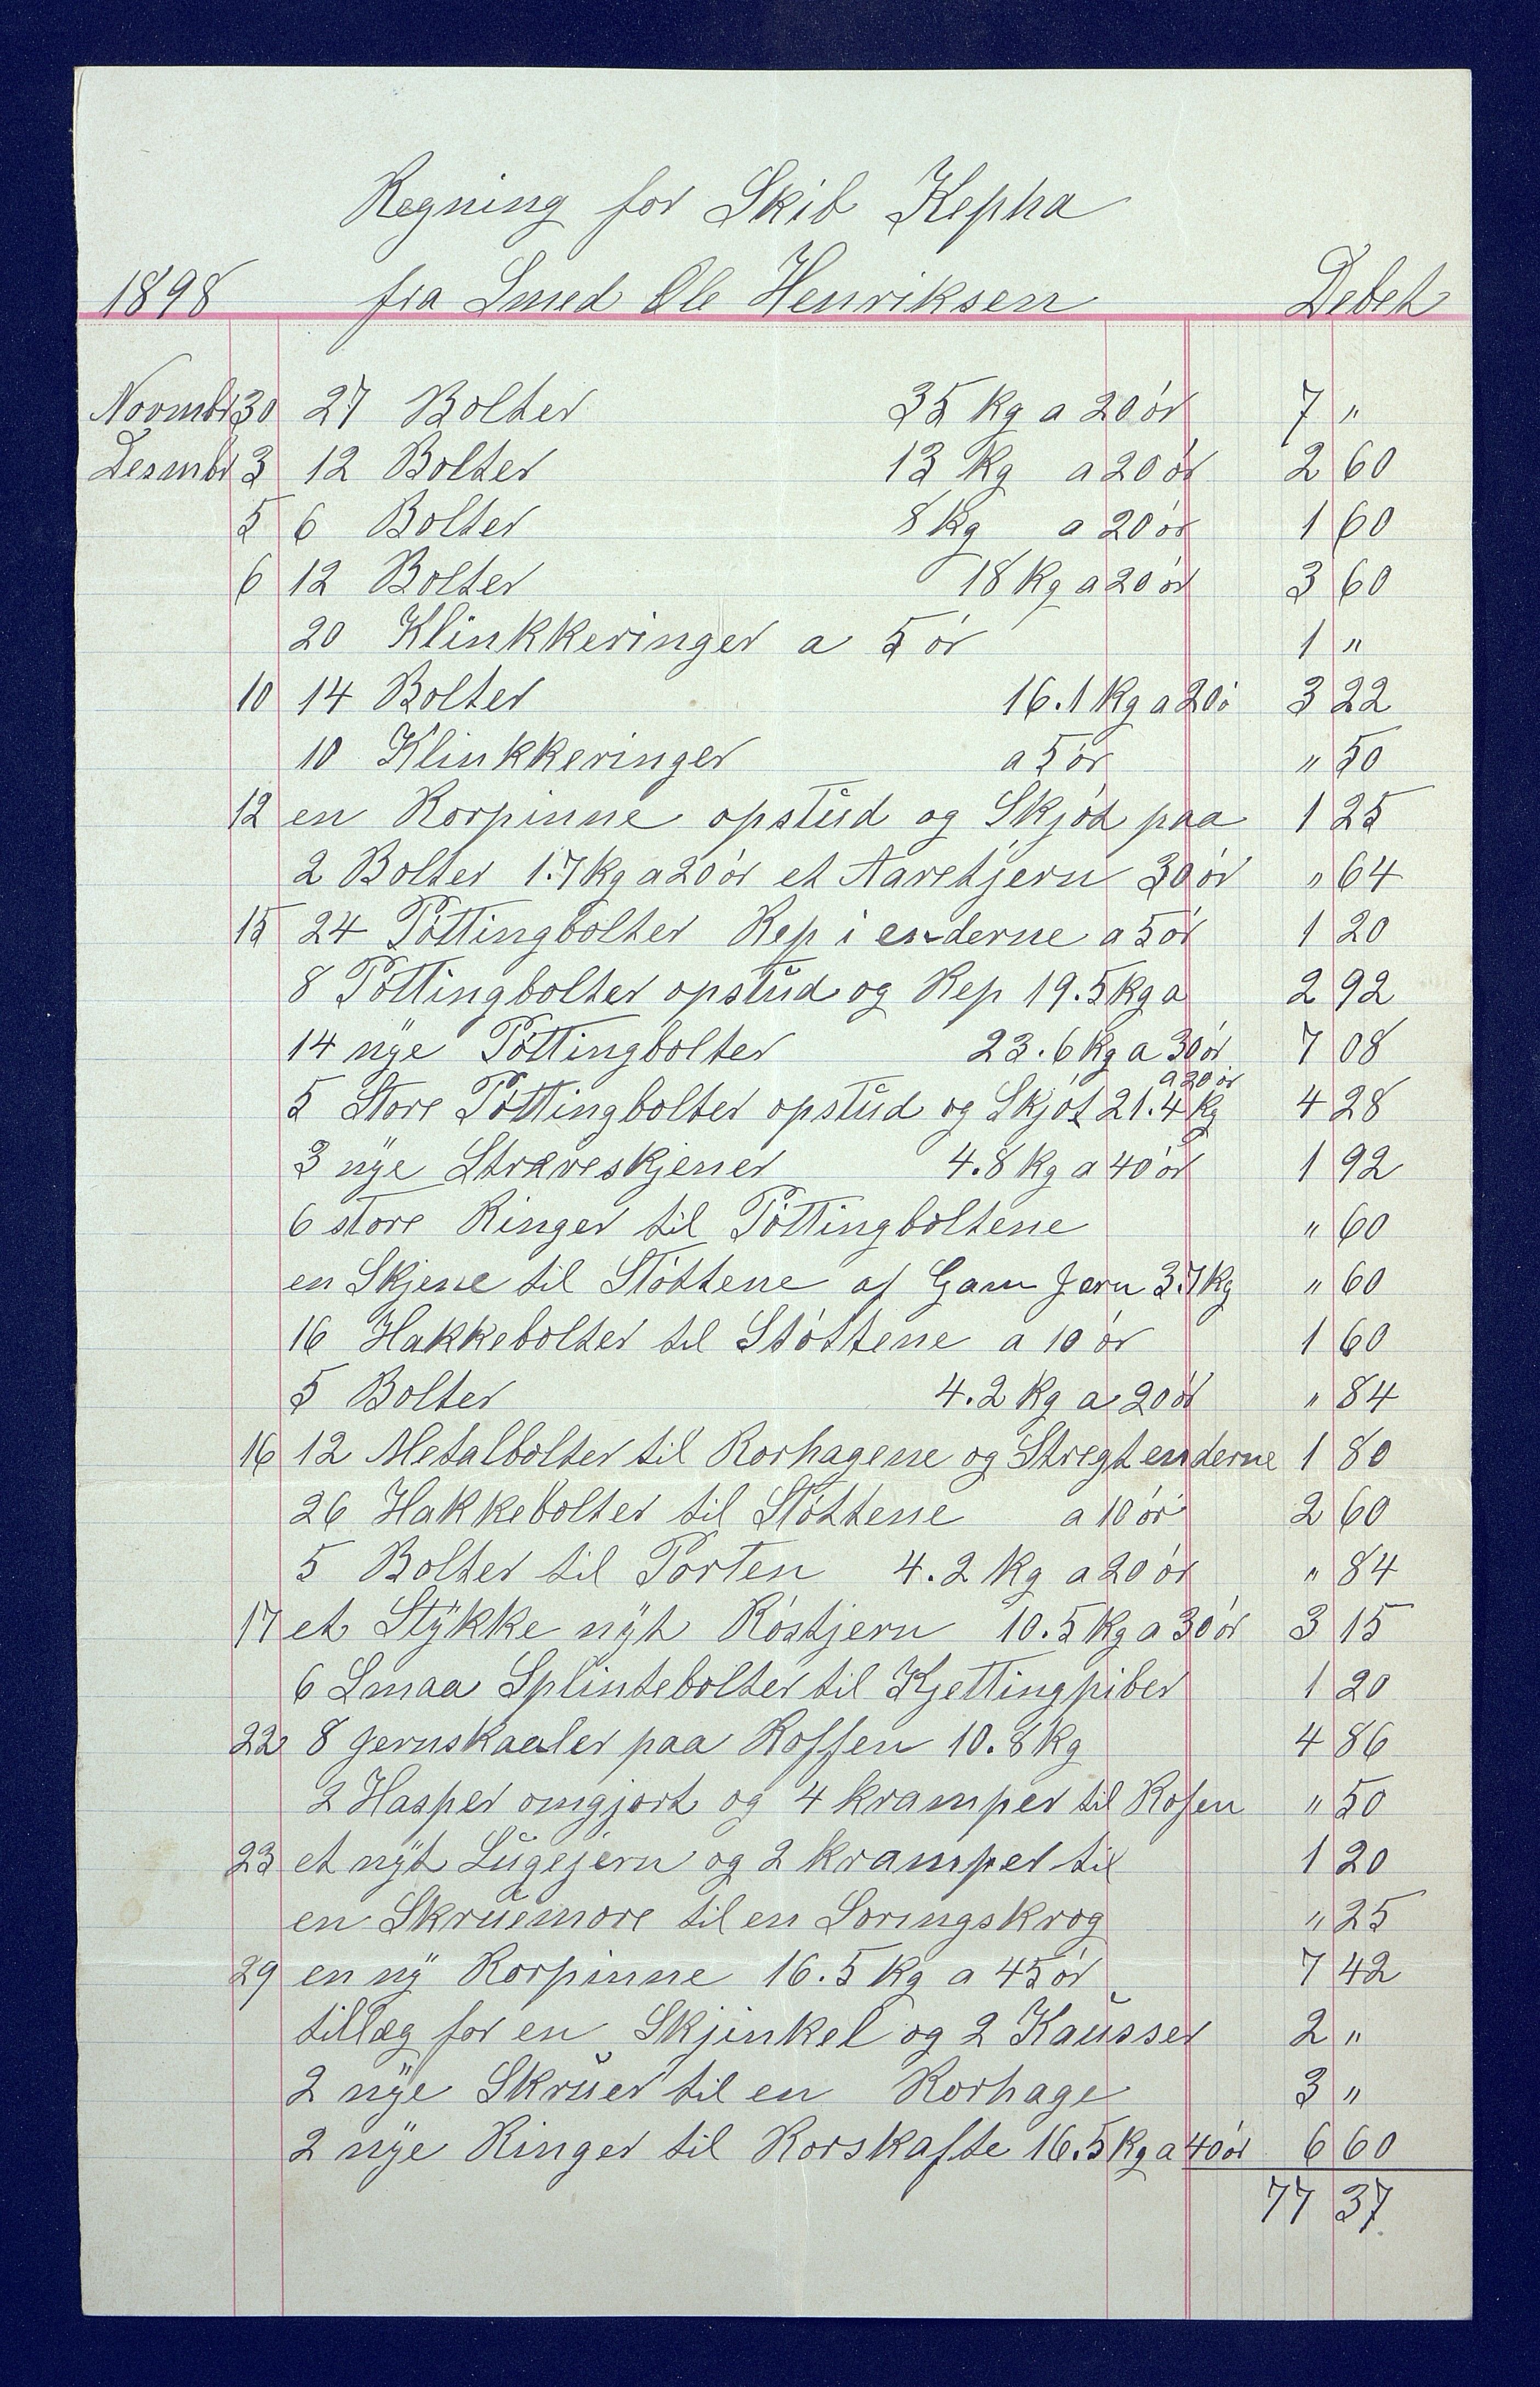 Regning for Skib Kepha
1898 fra Smed Ole Henriksen Debet
Novmbr 30 27 Bolter 35 kg a 20 ør 7 "
Desmbr 3 12 Bolter 13 kg a 20 ør 2 60
5 6 Bolter 8 kg a 20 ør 1 60
6 12 Bolter 18 kg a 20 ør 3 60
20 Klinkkeringer a 5 ør 1 "
10 14 Bolter 16.1 kg a 20 ø 3 22
10 Klinkkeringer a 5 ør " 50
12 en Rorpinne opstŭd og Skjød paa 1 25
2 Bolter 1.7 kg a 20 ør et Aaretjern 30 ør " 64
15 24 Pøttingbolter Rep i enderne a 5 ør 1 20
8 Pøttingbolter opstŭd og Rep 19.5 kg a 2 92
14 nÿe Pøttingbolter 23.6 kg a 30 ør 7 08
5 Store Pøttingbolter opstŭd og Skjøt 21.4 kg a 20 ør 4 28
3 nÿe Stræveskjener 4.8 kg a 40 ør 1 92
6 store Ringer til Pøttingboltene " 60
en Skjene til Støttene af Gam Jern 3.7 kg " 60
16 Hakkebolter til Støttene a 10 ør 1 60
5 Bolter 4.2 kg a 20 ør " 84
16 12 Metalbolter til Rorhagene og Stregt enderne 1 80
26 Hakkebolter til Støttene a 10 ør 2 60
5 Bolter til Porten 4.2 kg a 20 ør " 84
17 et Stÿkke nÿt Røstjern 10.5 kg a 30 ør 3 15
6 Smaa Splintebolter til Kjettingpiber 1 20
22 8 Jernskaaler paa Roffen 10.8 kg 4 86
2 Hasper omgjort og 4 kramper til Rofen " 50
23 et nÿt Lŭgejern og 2 kramper til 1 20
en Skrŭemore til en Soringskrog " 25
29 en nÿ Rorpinne 16.5 kg a 45 ør 7 42
tillæg for en Skjinkel og 2 Kaŭsser 2 "
2 nÿe Skrŭer til en Rorhage 3 "
2 nÿe Ringer til Rorskafte 16.5 kg a 40 ør 6 60
77 37